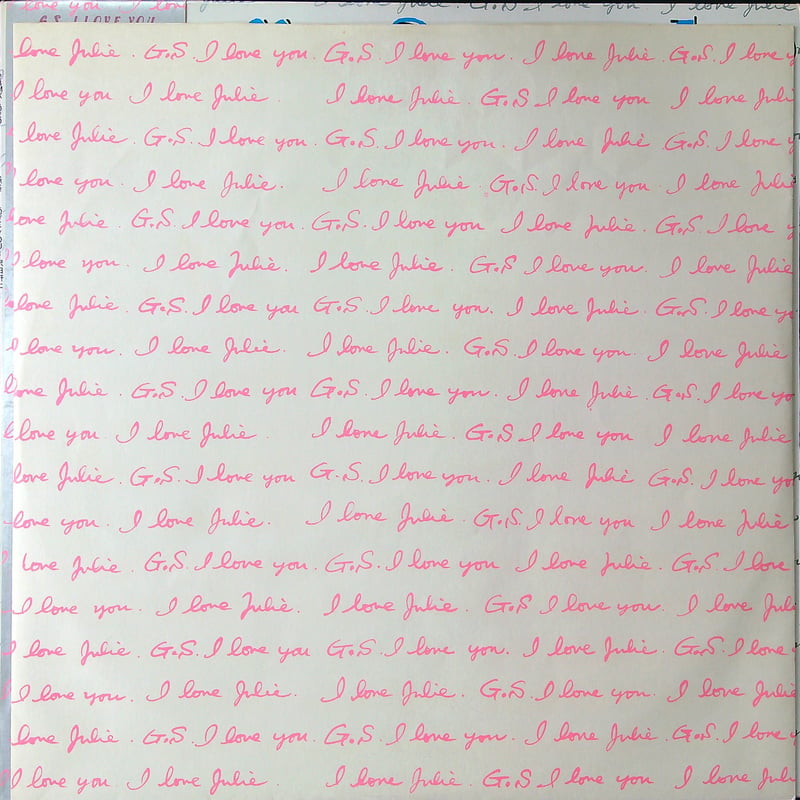 love you I love
G.S. I love you
G.S. I love you I love Julie
love Julie. G.S. I love you. G.S. I love you. I love Julie. G.S. I love y
I love you I love Julie. I love Julie. G.S. I love you I love Juli
love Julie. G.S. I love you. G.S. I love you. I love Julie G.S. I love y
I love you. I love Julie. I love Julie. G.S. I love you. I love Julie
love Julie. G.S. I love you. G.S. I love you I love Julie. G.S. I love y
I love you. I love Julie. I love Julie. G.S I love you. I love Julie
love Julie. G.S. I love you G.S. I love you. I love Julie. G.S. I love yo
I love you. I love Julie. I love Julie. G.S. I love you. I love Julie
love Julie. G.S. I love you G.S. I love you. I love Julie. G.S. I love yo
love you I love Julie. I love Julie. G.S. I love you I love Julie
love Julie. G.S. I love you G.S. I love you. I love Julie G.S. I love yo
love you. I love Julie. I love Julie. G.S. I love you I love Julie
love Julie. G.S. I love you. G.S. I love you I love Julie. G.S. I love
I love you. I love Julie. I love Julie. G.S I love you. I love Juli
I love Julie. G.S. I love you G.S. I love you. I love Julie. G.S. I love
I love you. I love Julie. I love Julie. G.S. I love you. I love Julie
love Julie. G.S. I love you. G.S. I love you. I love Julie. G.S. I love y
I love you I love Julie. I love Julie. G.S I love you I love Juli